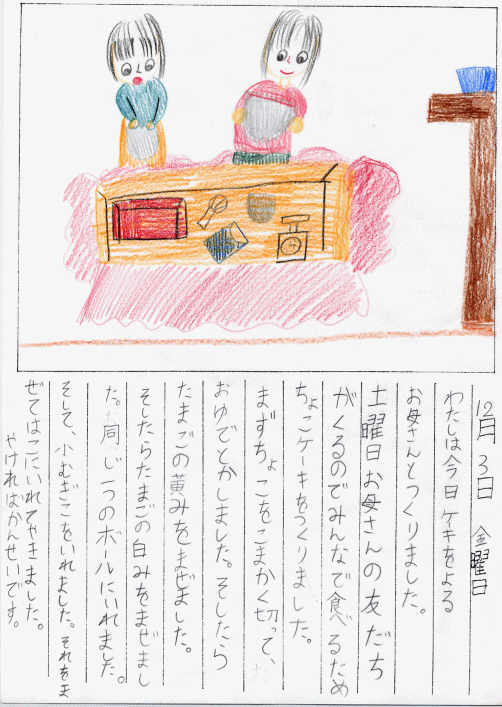 12月3日 金曜日
わたしは今日ケーキをよる
お母さんとつくりました。
土曜日お母さんの友だち
がくるのでみんなで食べるため
ちょこケーキをつくりました。
まずちょこをこまかく切って、
おゆでとかしました。そしたら
たまごの黄みをまぜました。
そしたらたまごの白みをまぜまし
た。同じ一つのボールにいれました。
そして、小むぎこをいれました。それをま
ぜてはこにいれてやきました。
やければかんせいです。